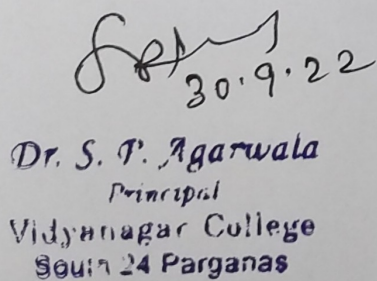 30.9.22
Dr. S. P. Agarwala
Principal
Vidyanagar College
South 24 Parganas